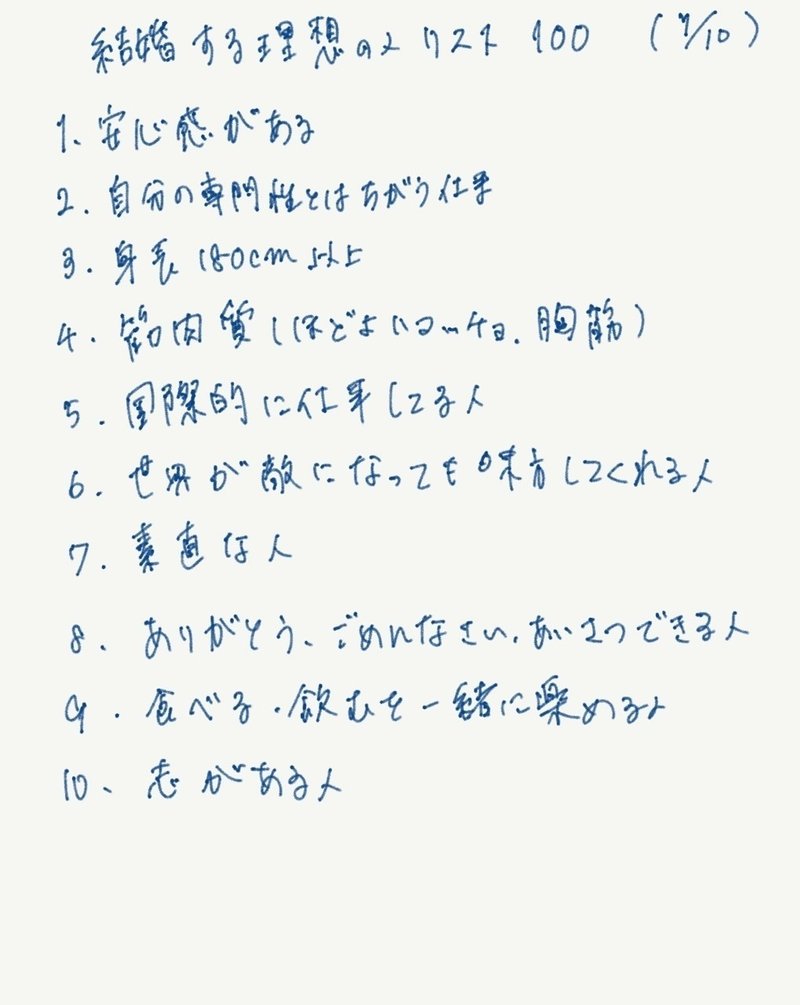 結婚する理想の人リスト 100 (1/10)
1、安心感がある
2. 自分の専門性とはちがう仕事
3. 身長 180cm 以上
4. 筋肉質(ほどよいマッチョ、胸筋)
5. 国際的に仕事してる人
6. 世界が敵になっても味方してくれる人
7. 素直な人
8. ありがとう、ごめんなさい、あいさつできる人
9. 食べる・飲むを一緒に楽める人
10、志がある人